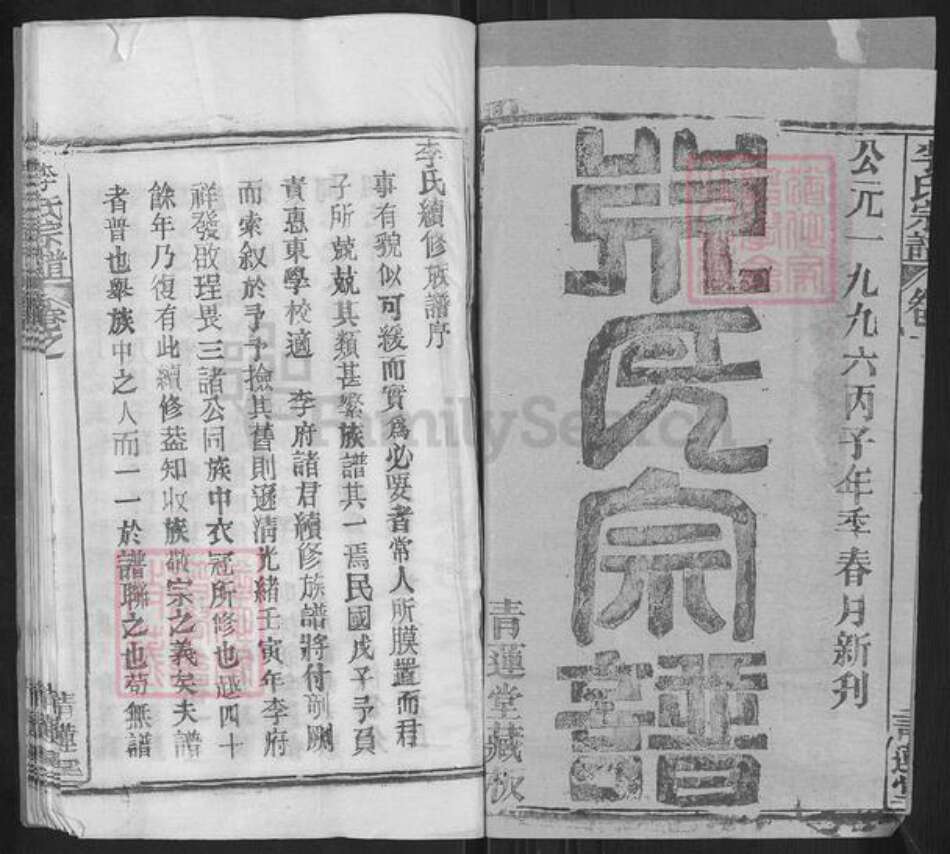 公元一九九六丙子年季春月新刊
李氏宗譜
青蓮堂藏次
李氏續修族譜序
事有貌似可緩而實爲必要者常人所膜置而君
子所兢兢其類甚繁族譜其一焉民國戊子予員
責惠東學校適 李府諸君續修族譜將付剞劂
而索叙於予予撿其舊則遜清光緒壬寅年李府
祥發啟珵畏三諸公同族中衣冠所修也越四十
餘年乃復有此續修益知收族敬宗之義矣夫譜
者普也舉族中之人而一一於譜聯之也苟無譜
李氏宗譜 卷之
FamilySearch